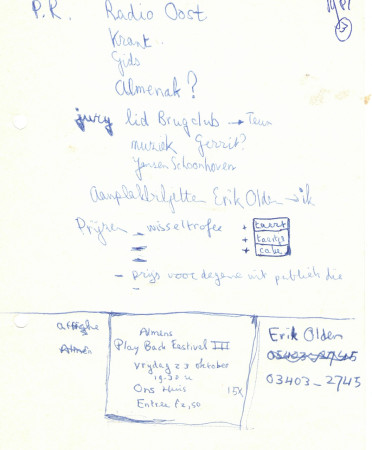 P.R. Radio Oost
Krant..
Gids
Almenak?
jury lid Brugclub → Teun
muziek Gerrit?
Jansen Schoonhoven
Aanplakbiljetten Erik Olden → ik
Prijzen - wisseltrofee + taart
+ taartje
+ cake
- prijs voor degene uit publiek die
-
affiche
Almen
Almens
Play Back Festival III
Vrydag 23 oktober
19.30 u
Ons Huis
15x
Entree f2,50
Erik Olden
03403-2745
03403-2745